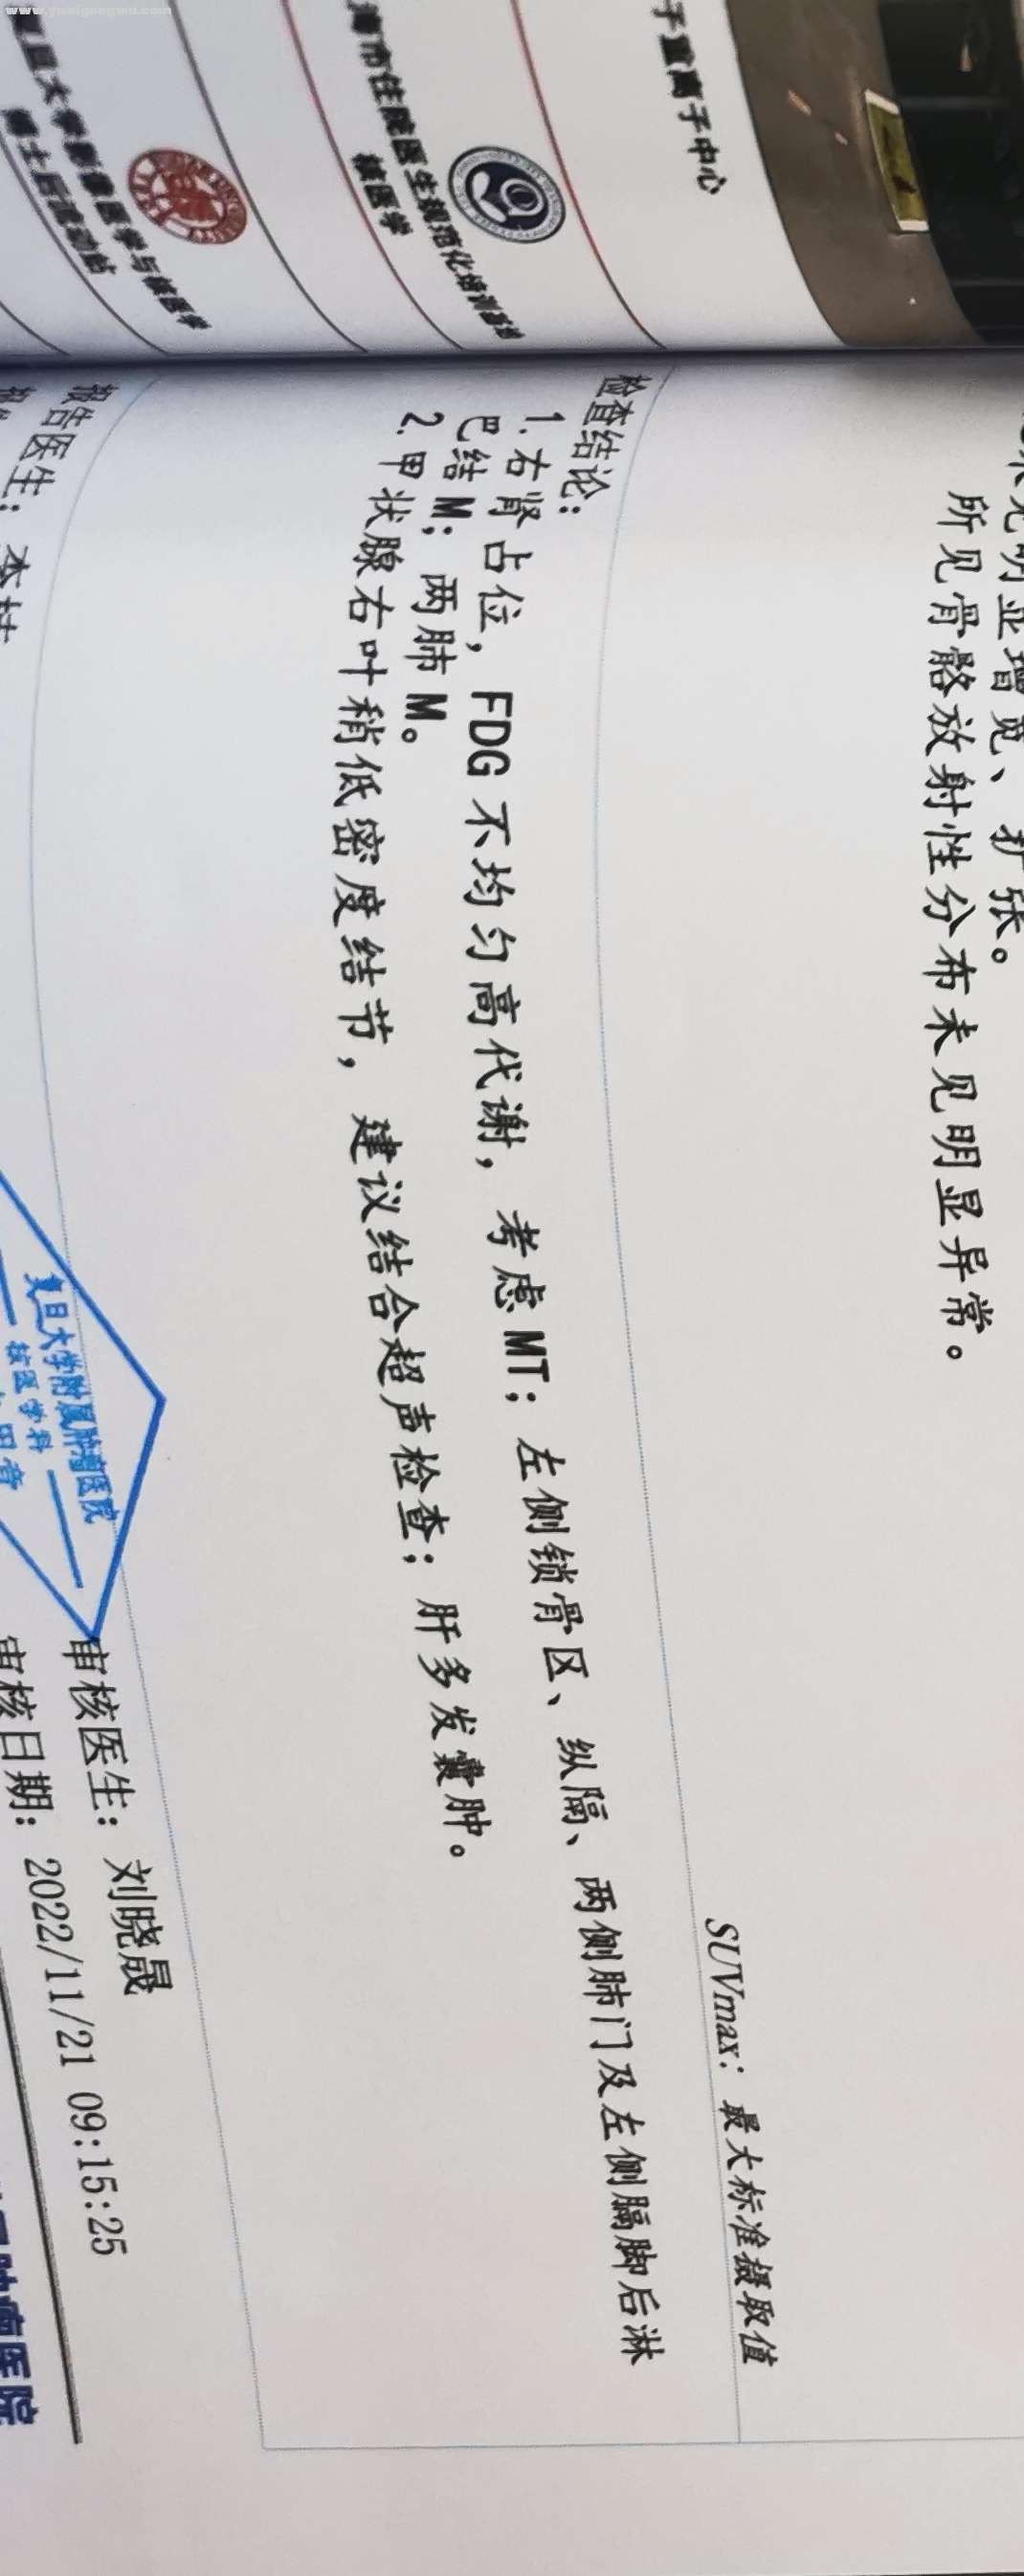 www.yaxigongwu.com
子重离子中心
海市住院医生规范化培训基地
核医学
复旦大学影像医学与核医学
博士后流动站
未见明显增宽、扩张。
所见骨骼放射性分布未见明显异常。
SUVmax: 最大标准摄取值
检查结论:
1. 右肾占位, FDG 不均匀高代谢, 考虑 MT; 左侧锁骨区、纵隔、两侧肺门及左侧膈脚后淋
巴结 M; 两肺 M。
2. 甲状腺右叶稍低密度结节, 建议结合超声检查; 肝多发囊肿。
报告医生:
审核医生: 刘晓晟
审核日期: 2022/11/21 09:15:25
复旦大学附属肿瘤医院
核医学科
肿瘤医院